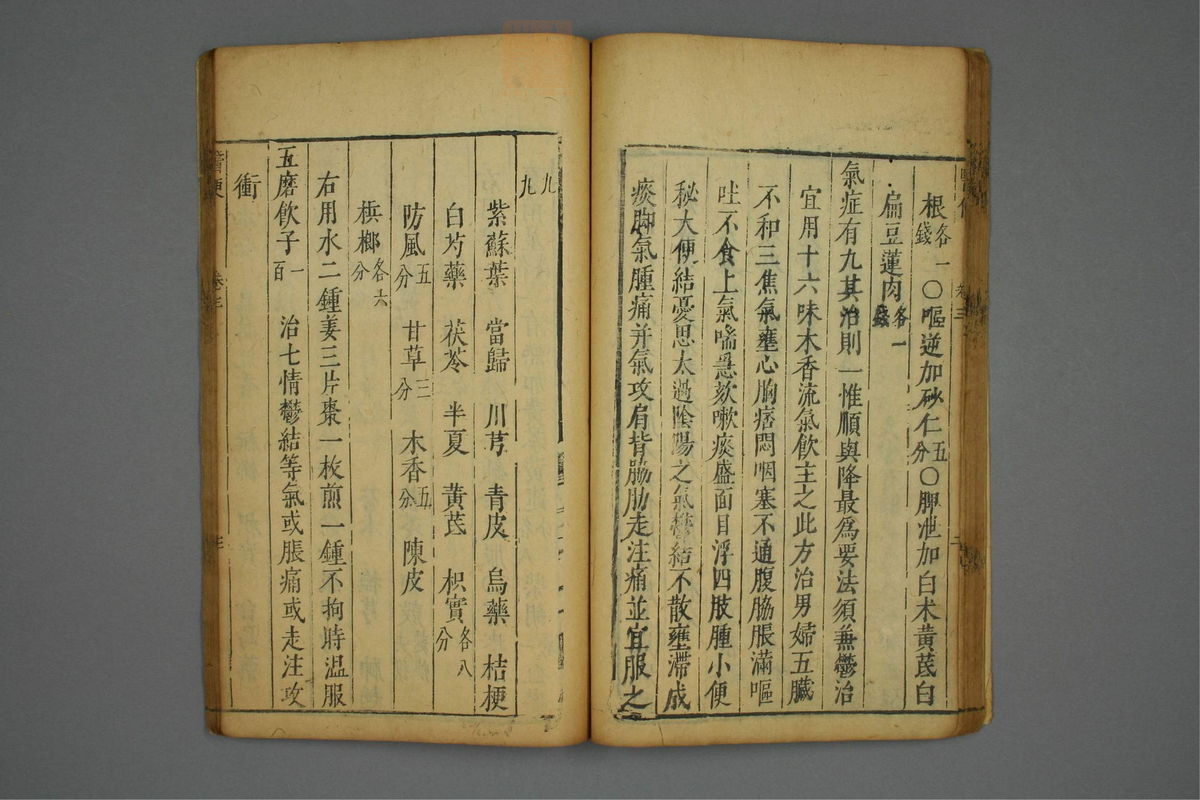 根各一錢〇嘔逆加砂仁五分〇脾泄加白朮黃茋白
扁豆蓮肉各一錢
氣症有九其治則一惟順與降最爲要法須兼鬱治
宜用十六味木香流氣飲主之此方治男婦五臟
不和三焦氣壅心胸痞悶咽塞不通腹脇脹滿嘔
吐不食上氣喘急欬嗽痰盛面目浮四肢腫小便
秘大便結憂思太過陰陽之氣鬱結不散壅滯成
痰脚氣腫痛并氣攻肩背脇肋走注痛並宜服之
九九
紫蘇葉 當歸 川芎 青皮 烏藥 桔梗
白芍藥 茯苓 半夏 黃茋 枳實各八分
防風五分 甘草三分 木香五分 陳皮
檳榔各六分
右用水二鍾姜三片棗一枚煎一鍾不拘時溫服
五磨飲子一百 治七情鬱結等氣或脹痛或走注攻
衝